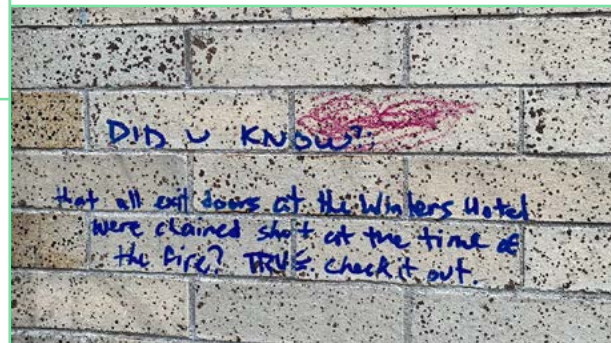 DID U KNOW?:
that all exit doors at the Winters Hotel
were chained shut at the time of
the fire? TRUE. check it out.